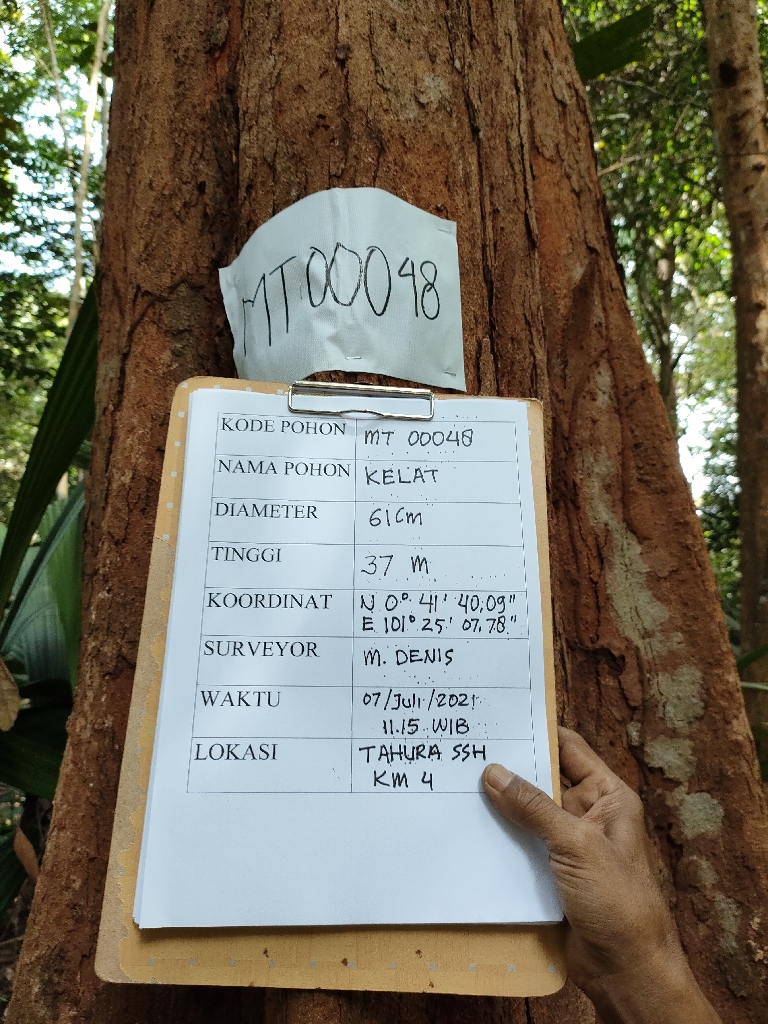 MT00048
KODE POHON MT 00048
NAMA POHON KELAT
DIAMETER 61 Cm
TINGGI 37 M
KOORDINAT N 0° 41' 40,09"
E 101° 25' 07,78"
SURVEYOR M. DENIS
WAKTU 07/Juli/2021
11.15 WIB
LOKASI TAHURA SSH
KM 4